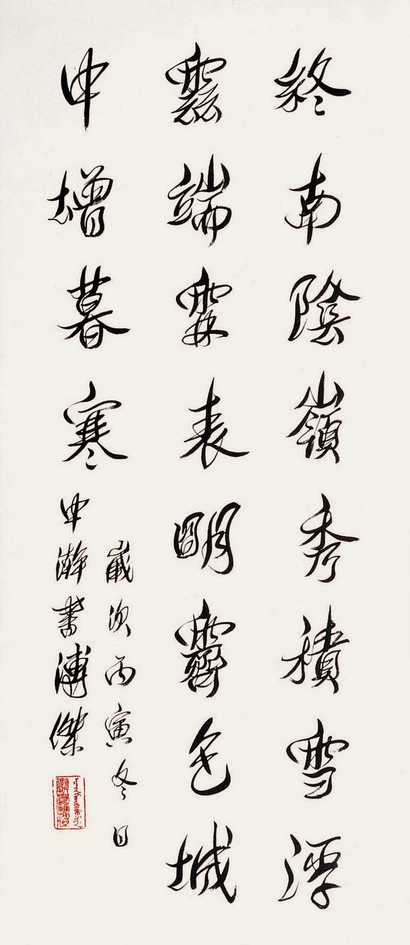 終南陰嶺秀積雪浮
雲端表明霽色城
中增暮寒
歲次丙寅冬日
中澣書溥傑